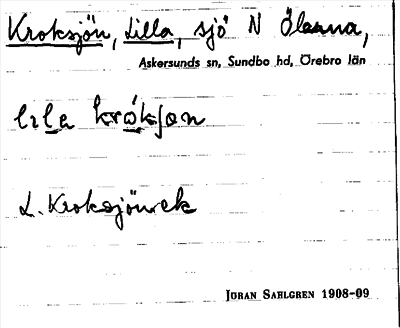 Kroksjön, Lilla, sjö N Ölsna,
Askersunds sn, Sundbo hd, Örebro län
lɩla króksɔn
L. Kroksjön
JÖRAN SAHLGREN 1908-09